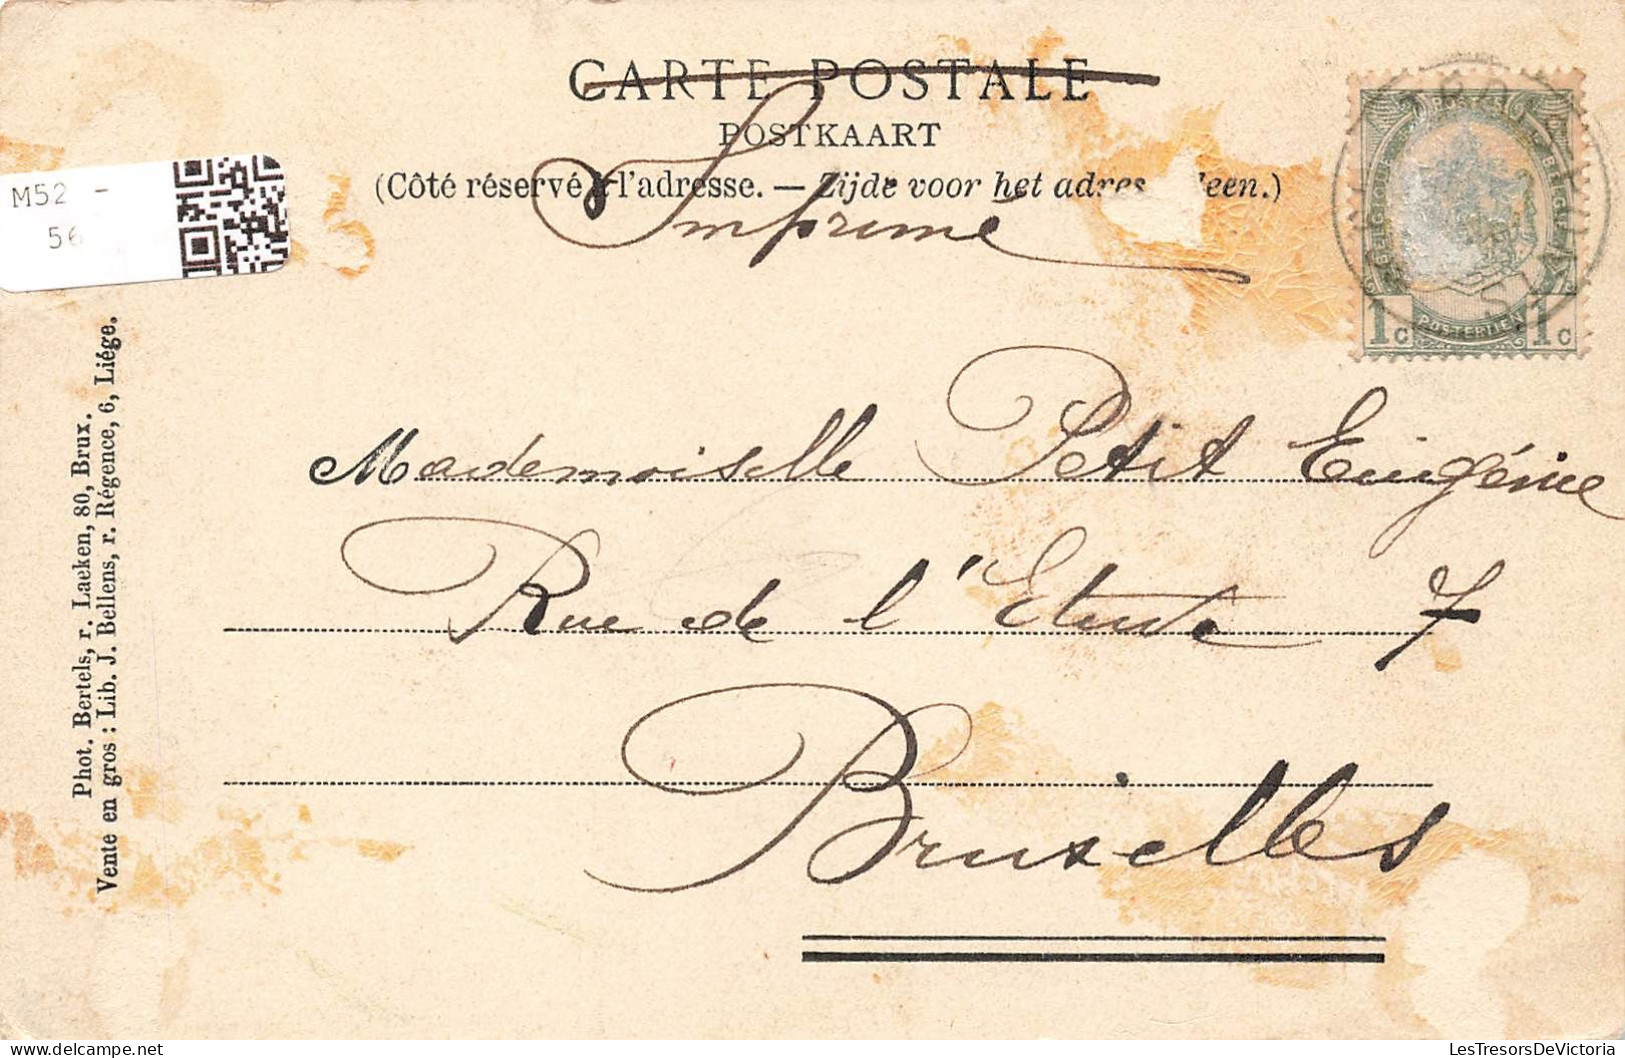 CARTE POSTALE
POSTKAART
(Côté réservé à l'adresse. — Zijde voor het adres leen.)
Imprimé
M52 -
56
POSTES
BELGIQUE BELGIË
POSTERIJEN
1c 1c
Mademoiselle Petit Eugénie
Rue de l'Etuve 7
Bruxelles
Phot. Bertels, r. Laeken, 80, Brux.
Vente en gros : Lib. J. Bellens, r. Régence, 6, Liége.
LesTresorsDeVictoria